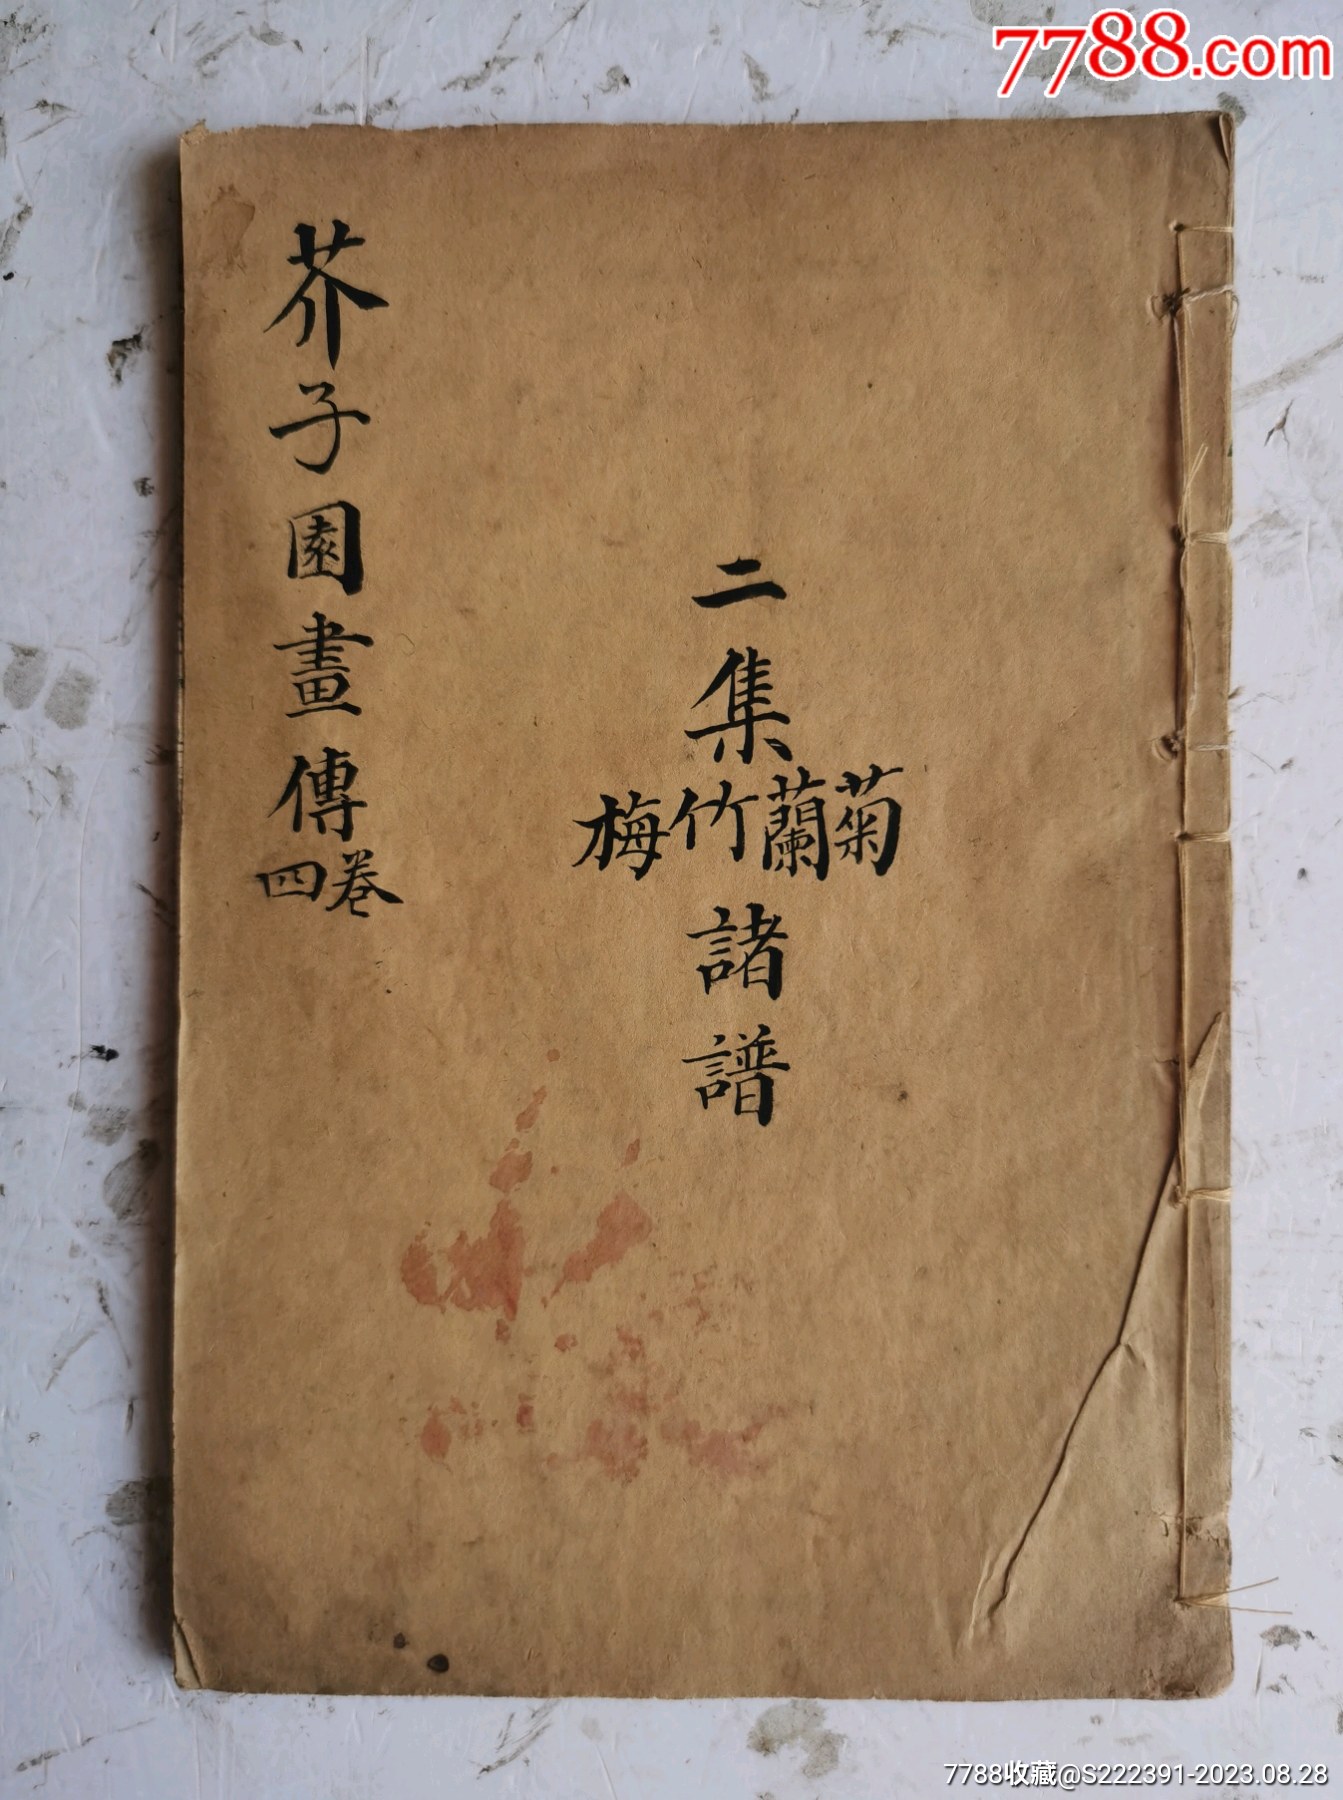 7788.com
芥子園畫傳
卷四
二集
菊蘭竹梅
諸譜
7788收藏@S222391-2023.08.28